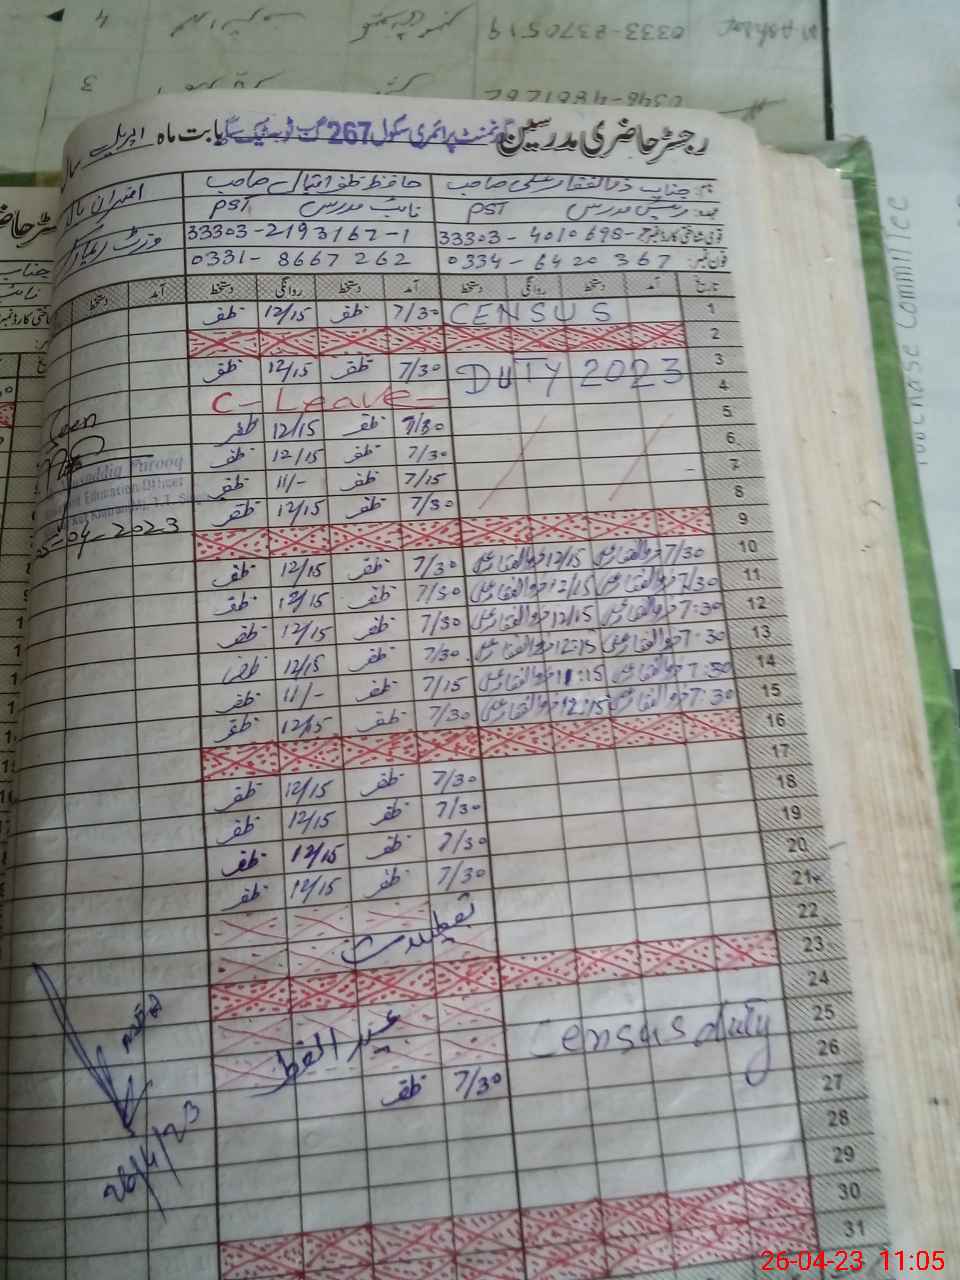 0333-8370519
4
3
رجسٹر حاضری مدرسین گورنمنٹ پرائمری سکول 267 بابت ماہ اپریل
جناب ذوالفقار علی صاحب حافظ ظفر اقبال صاحب
رئیس مدرس PST نائب مدرس PST
قومی شناختی کارڈ نمبر 33303-4010698-7 33303-2193167-1
فون نمبر: 0334-6420367 0331-8667262
تاریخ آمد دستخط روانگی دستخط آمد دستخط روانگی دستخط آمد دستخط
1 CENSUS 7/30 ظفر 12/15 ظفر
2
3 DUTY 2023 7/30 ظفر 12/15 ظفر
4 C-Leave
5 7/30 ظفر 12/15 ظفر
6 7/30 ظفر 12/15 ظفر
7 7/15 ظفر 11/- ظفر
8 7/30 ظفر 12/15 ظفر
9
10 7/30 ذوالفقار علی 12/15 ذوالفقار علی 7/30 ظفر 12/15 ظفر
11 7/30 ذوالفقار علی 12/15 ذوالفقار علی 7/30 ظفر 12/15 ظفر
12 7:30 ذوالفقار علی 12/15 ذوالفقار علی 7/30 ظفر 12/15 ظفر
13 7:30 ذوالفقار علی 12:15 ذوالفقار علی 7/30 ظفر 12/15 ظفر
14 7:30 ذوالفقار علی 11:15 ذوالفقار علی 7/15 ظفر 11/- ظفر
15 7:30 ذوالفقار علی 12:15 ذوالفقار علی 7/30 ظفر 12/15 ظفر
16
17
18 7/30 ظفر 12/15 ظفر
19 7/30 ظفر 12/15 ظفر
20 7/30 ظفر 12/15 ظفر
21 7/30 ظفر 12/15 ظفر
22 تعطیلات
23
24
25 Census duty عید الفطر
26
27 7/30 ظفر
28
29
30
31
Seen
Farooq
Education Officer
05-04-2023
26/4/23
Committee
26-04-23 11:05